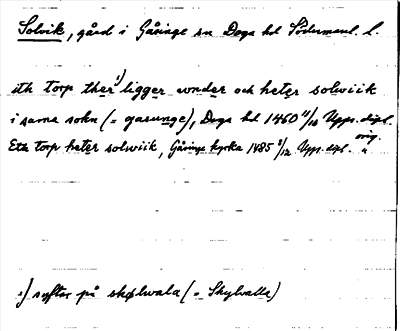 Solvik, gård i Gåsinge sn Daga hd Södermanl. l.
ith torp ther¹) ligger wnder och heter solwiik
i sama sokn (= gasunge), Daga hd 1460 11/10 Upps. dipl. orig.
Ett torp heter solwiik, Gåsinge kyrka 1485 8/12 Upps. dipl. "
1) syftar på skølwala (= Skylvalla)